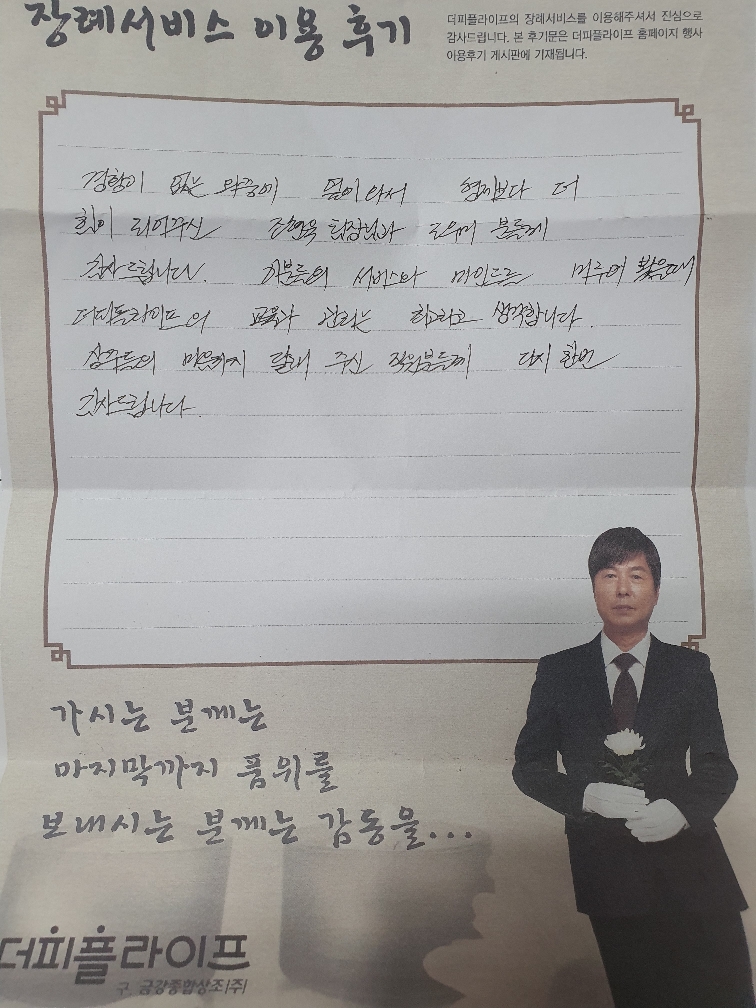 장례서비스 이용 후기
더피플라이프의 장례서비스를 이용해주셔서 진심으로
감사드립니다. 본 후기문은 더피플라이프 홈페이지 행사
이용후기 게시판에 기재됩니다.
경황이 없는 와중에 찾아와서 형제보다 더
힘이 되어주신 팀장님과 도우미 분들께
감사드립니다. 이분들의 서비스와 마인드를 미루어 봤을때
더피플라이프의 교육과 관리는 최고라고 생각합니다.
상주들의 마음까지 달래 주신 직원분들께 다시 한번
감사드립니다.
가시는 분께는
마지막까지 품위를
보내시는 분께는 감동을...
더피플라이프
구. 금강종합상조(주)